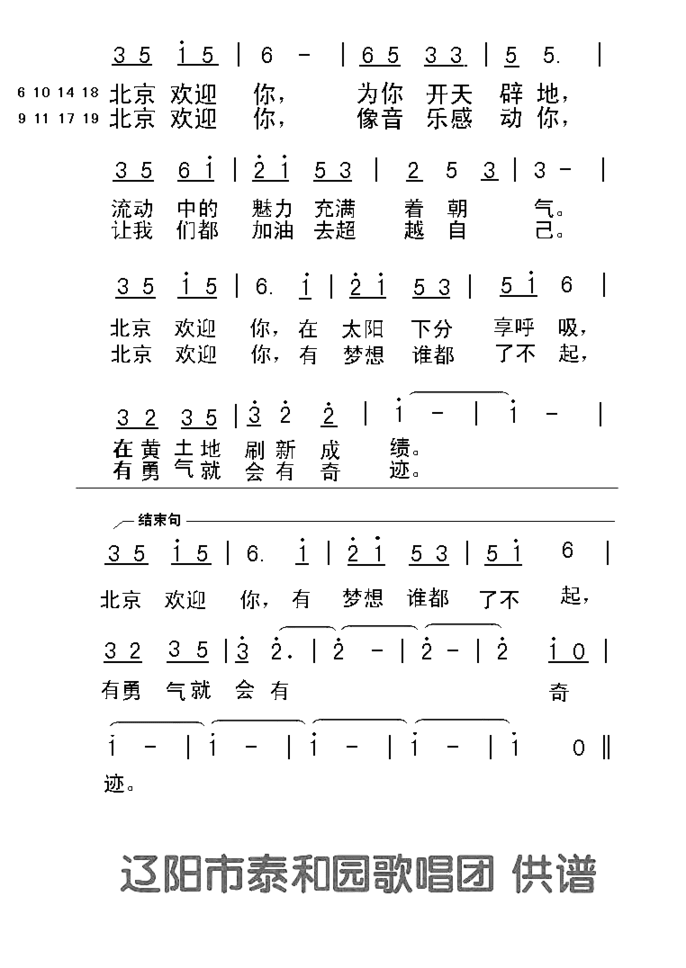 3 5 i 5 | 6 - | 6 5 3 3 | 5 5. |
6 10 14 18 北京 欢迎 你， 为你 开天 辟 地，
9 11 17 19 北京 欢迎 你， 像音 乐感 动 你，
3 5 6 i | 2 i 5 3 | 2 5 3 | 3 - |
流动 中的 魅力 充满 着 朝 气。
让我 们都 加油 去超 越 自 己。
3 5 i 5 | 6. i | 2 i 5 3 | 5 i 6 |
北京 欢迎 你，在 太阳 下分 享呼 吸，
北京 欢迎 你，有 梦想 谁都 了不 起，
3 2 3 5 | 3 2 2 | i - | i - |
在黄 土地 刷新 成 绩。
有勇 气就 会有 奇 迹。
结束句
3 5 i 5 | 6. i | 2 i 5 3 | 5 i 6 |
北京 欢迎 你，有 梦想 谁都 了不 起，
3 2 3 5 | 3 2. | 2 - | 2 - | 2 i 0 |
有勇 气就 会 有 奇
i - | i - | i - | i - | i 0 ‖
迹。
辽阳市泰和园歌唱团 供谱